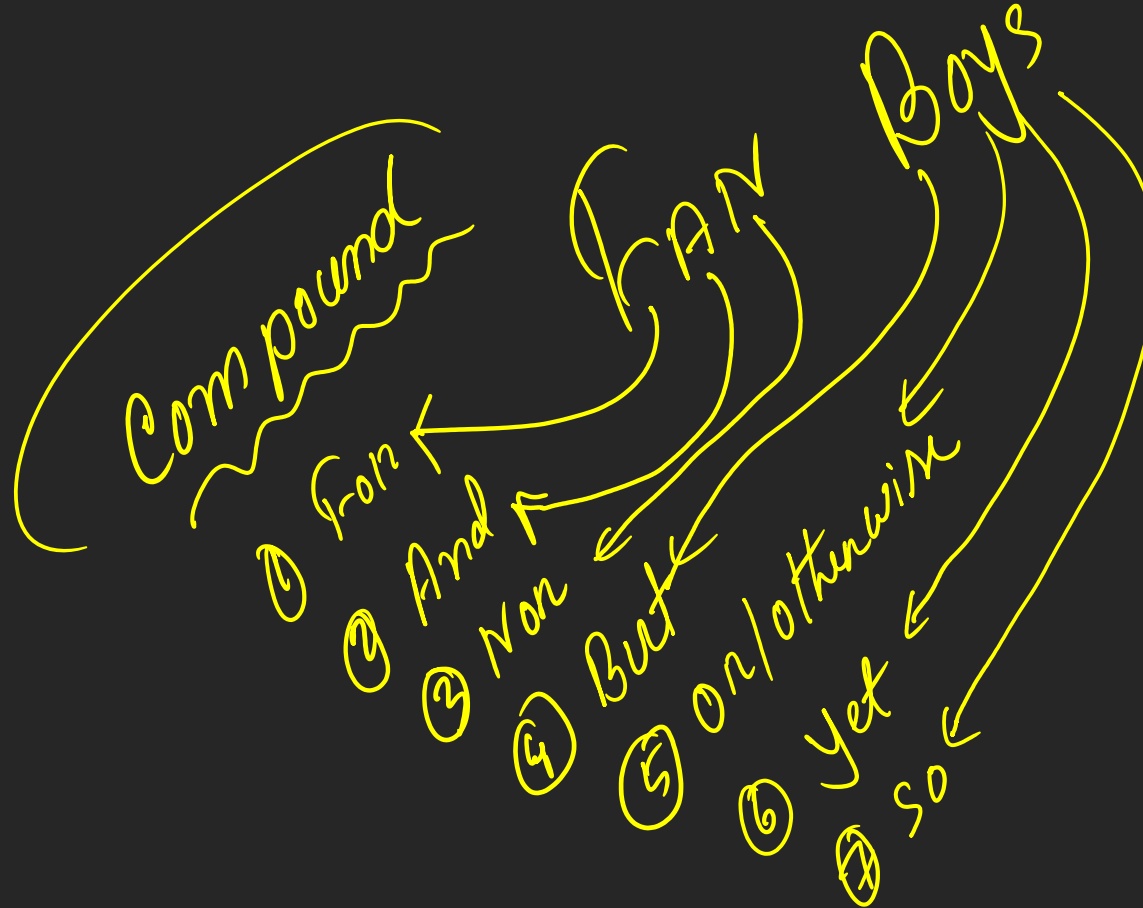 Compound
FAN Boys
① For
② And
③ Nor
④ But
⑤ or/otherwise
⑥ yet
⑦ so